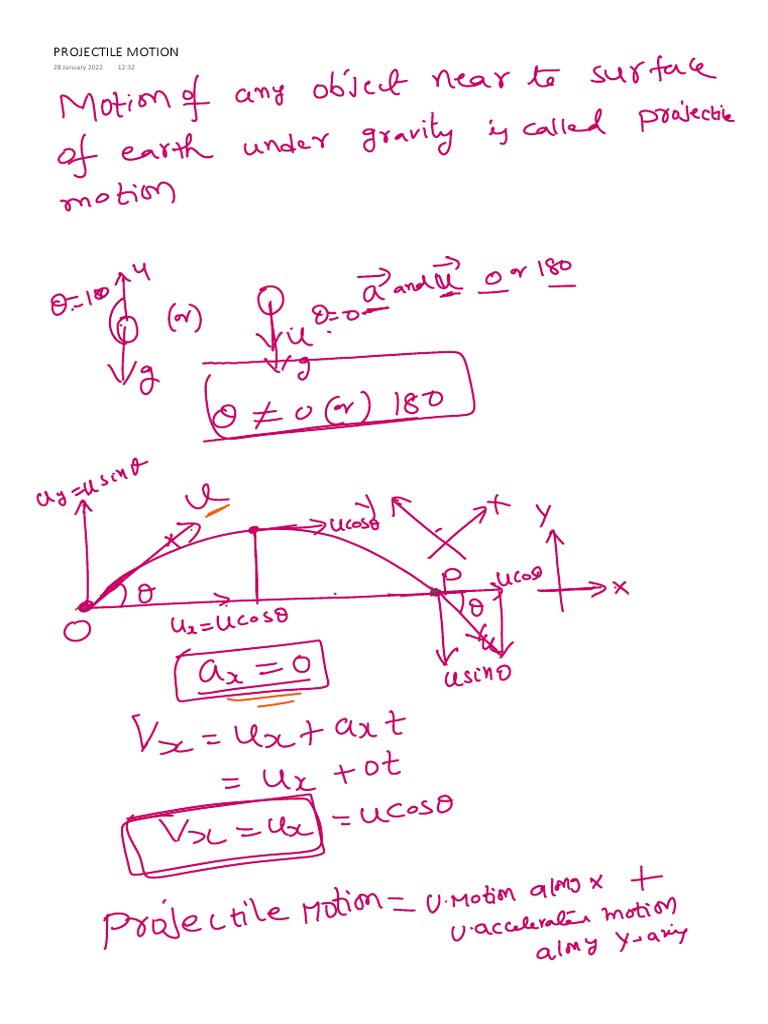 PROJECTILE MOTION
28 January 2022 12:32
Motion of any object near to surface
of earth under gravity is called projectile
motion
θ=180 u
g
(or)
θ=0
u
g
a and u 0 or 180
θ ≠ 0 (or) 180
uy=usinθ
u
ucosθ
x
y
θ
O
ux=ucosθ
P
ucosθ
θ
u
usinθ
x
ax = 0
Vx = ux + axt
= ux + 0t
Vx = ux = ucosθ
Projectile Motion = U.Motion along x +
U.acceleration motion
along y-axis